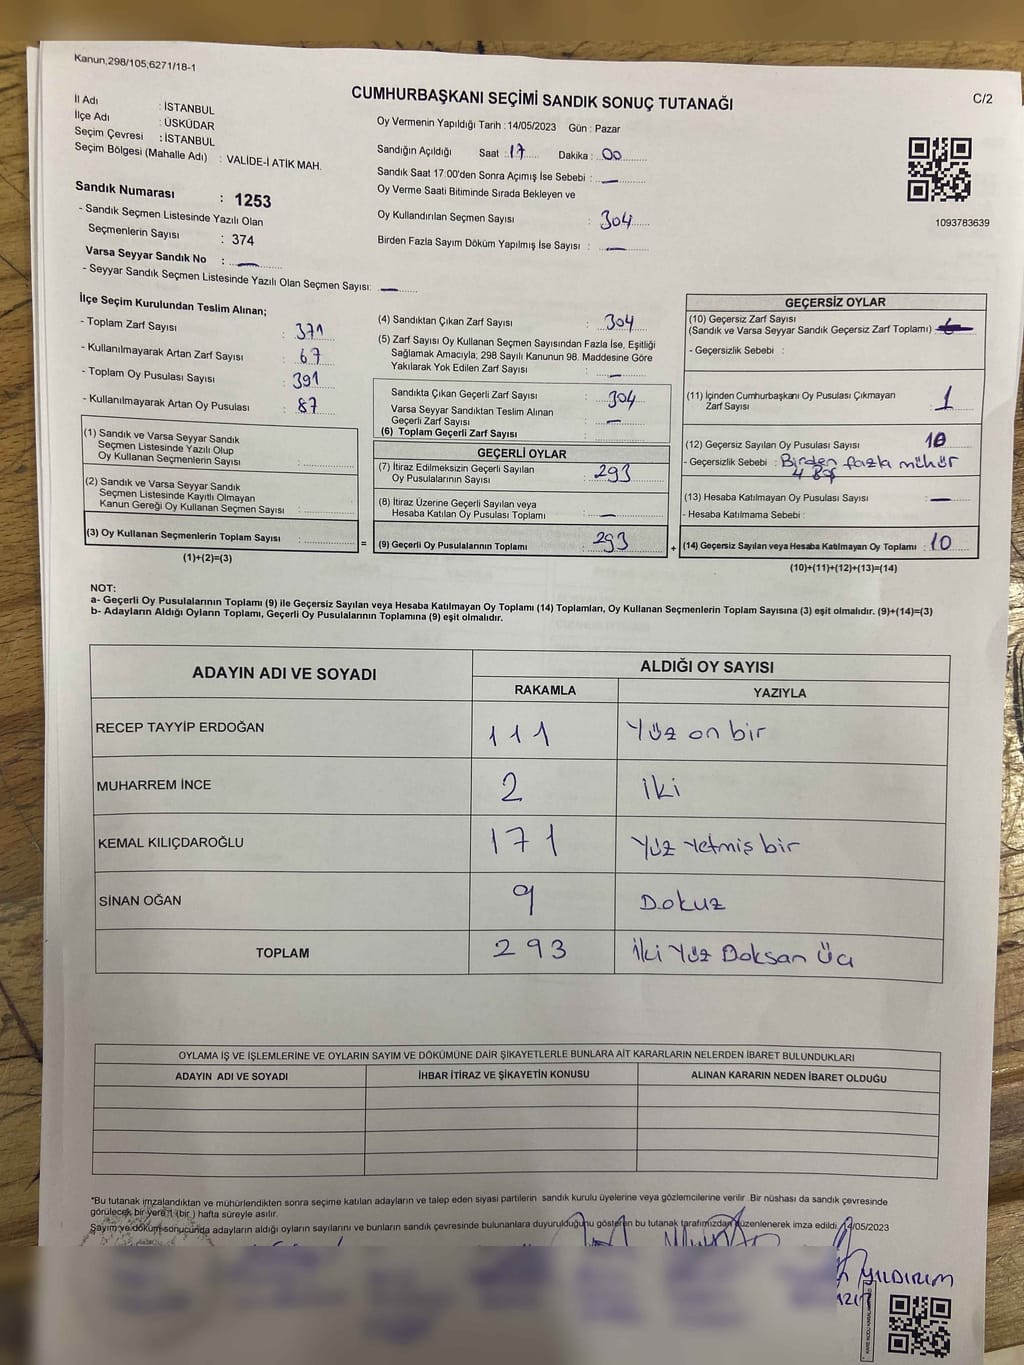 Kanun;298/105;6271/18-1
C/2
CUMHURBAŞKANI SEÇİMİ SANDIK SONUÇ TUTANAĞI
İl Adı : İSTANBUL
İlçe Adı : ÜSKÜDAR
Seçim Çevresi : İSTANBUL
Seçim Bölgesi (Mahalle Adı) : VALİDE-İ ATİK MAH.
Sandık Numarası : 1253
- Sandık Seçmen Listesinde Yazılı Olan
Seçmenlerin Sayısı : 374
Varsa Seyyar Sandık No :
- Seyyar Sandık Seçmen Listesinde Yazılı Olan Seçmen Sayısı:
Oy Vermenin Yapıldığı Tarih : 14/05/2023 Gün : Pazar
Sandığın Açıldığı Saat : 17 Dakika : 00
Sandık Saat 17:00'den Sonra Açımış İse Sebebi :
Oy Verme Saati Bitiminde Sırada Bekleyen ve
Oy Kullandırılan Seçmen Sayısı : 304
Birden Fazla Sayım Döküm Yapılmış İse Sayısı :
1093783639
İlçe Seçim Kurulundan Teslim Alınan;
- Toplam Zarf Sayısı : 371
- Kullanılmayarak Artan Zarf Sayısı : 67
- Toplam Oy Pusulası Sayısı : 391
- Kullanılmayarak Artan Oy Pusulası : 87
(1) Sandık ve Varsa Seyyar Sandık
Seçmen Listesinde Yazılı Olup
Oy Kullanan Seçmenlerin Sayısı :
(2) Sandık ve Varsa Seyyar Sandık
Seçmen Listesinde Kayıtlı Olmayan
Kanun Gereği Oy Kullanan Seçmen Sayısı :
(3) Oy Kullanan Seçmenlerin Toplam Sayısı :
(1)+(2)=(3)
=
(4) Sandıktan Çıkan Zarf Sayısı : 304
(5) Zarf Sayısı Oy Kullanan Seçmen Sayısından Fazla İse, Eşitliği
Sağlamak Amacıyla; 298 Sayılı Kanunun 98. Maddesine Göre
Yakılarak Yok Edilen Zarf Sayısı :
Sandıkta Çıkan Geçerli Zarf Sayısı : 304
Varsa Seyyar Sandıktan Teslim Alınan
Geçerli Zarf Sayısı :
(6) Toplam Geçerli Zarf Sayısı :
GEÇERLİ OYLAR
(7) İtiraz Edilmeksizin Geçerli Sayılan
Oy Pusulalarının Sayısı : 293
(8) İtiraz Üzerine Geçerli Sayılan veya
Hesaba Katılan Oy Pusulası Toplamı :
(9) Geçerli Oy Pusulalarının Toplamı : 293
+
GEÇERSİZ OYLAR
(10) Geçersiz Zarf Sayısı
(Sandık ve Varsa Seyyar Sandık Geçersiz Zarf Toplamı) :
- Geçersizlik Sebebi :
(11) İçinden Cumhurbaşkanı Oy Pusulası Çıkmayan
Zarf Sayısı : 1
(12) Geçersiz Sayılan Oy Pusulası Sayısı : 10
- Geçersizlik Sebebi : Birden fazla mühür
(13) Hesaba Katılmayan Oy Pusulası Sayısı :
- Hesaba Katılmama Sebebi :
(14) Geçersiz Sayılan veya Hesaba Katılmayan Oy Toplamı : 10
(10)+(11)+(12)+(13)=(14)
NOT:
a- Geçerli Oy Pusulalarının Toplamı (9) ile Geçersiz Sayılan veya Hesaba Katılmayan Oy Toplamı (14) Toplamları, Oy Kullanan Seçmenlerin Toplam Sayısına (3) eşit olmalıdır. (9)+(14)=(3)
b- Adayların Aldığı Oyların Toplamı, Geçerli Oy Pusulalarının Toplamına (9) eşit olmalıdır.
ADAYIN ADI VE SOYADI
ALDIĞI OY SAYISI
RAKAMLA YAZIYLA
RECEP TAYYİP ERDOĞAN 111 Yüz on bir
MUHARREM İNCE 2 İki
KEMAL KILIÇDAROĞLU 171 Yüz Yetmiş bir
SİNAN OĞAN 9 Dokuz
TOPLAM 293 İki Yüz Doksan Üç
OYLAMA İŞ VE İŞLEMLERİNE VE OYLARIN SAYIM VE DÖKÜMÜNE DAİR ŞİKAYETLERLE BUNLARA AİT KARARLARIN NELERDEN İBARET BULUNDUKLARI
ADAYIN ADI VE SOYADI İHBAR İTİRAZ VE ŞİKAYETİN KONUSU ALINAN KARARIN NEDEN İBARET OLDUĞU
*Bu tutanak imzalandıktan ve mühürlendikten sonra seçime katılan adayların ve talep eden siyasi partilerin sandık kurulu üyelerine veya gözlemcilerine verilir. Bir nüshası da sandık çevresinde
görülecek bir yere 1 (bir ) hafta süreyle asılır.
Sayım ve döküm sonucunda adayların aldığı oyların sayılarını ve bunların sandık çevresinde bulunanlara duyurulduğunu gösteren bu tutanak tarafımızdan düzenlenerek imza edildi. /05/2023
YILDIRIM